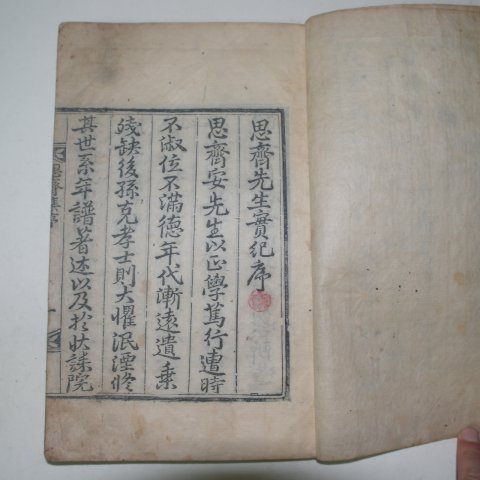 思齊先生實紀序
思齊安先生以正學篤行遭時
不淑位不滿德年代漸遠遺乘
殘缺後孫克孝士則大懼泯湮修
其世系年譜著述以及於狀誄院